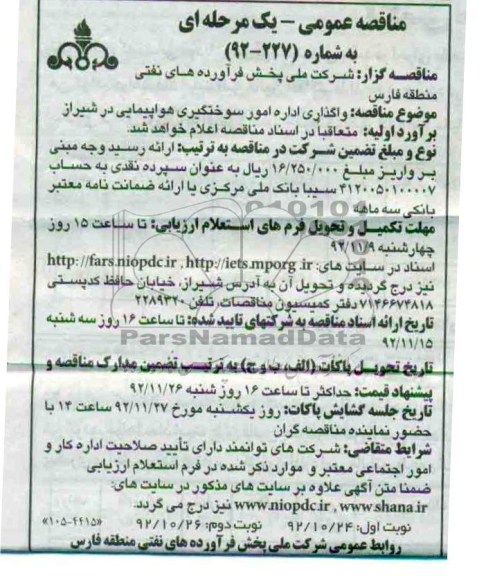 مناقصه عمومی – یک مرحله ای
به شماره (۲۲۷-۹۲)
مناقصه گزار: شرکت ملی پخش فرآورده های نفتی
منطقه فارس
موضوع مناقصه: واگذاری اداره امور سوختگیری هواپیمایی در شیراز
برآورد اولیه: متعاقباً در اسناد مناقصه اعلام خواهد شد.
نوع و مبلغ تضمین شرکت در مناقصه به ترتیب: ارائه رسید وجه مبنی
بر واریز مبلغ ۱۶/۲۵۰/۰۰۰ ریال به عنوان سپرده نقدی به حساب
۴۱۲۰۰۵۰۱۰۰۰۰۷ سیبا بانک ملی مرکزی یا ارائه ضمانت نامه معتبر
بانکی سه ماهه
مهلت تکمیل و تحویل فرم های استعلام ارزیابی: تا ساعت ۱۵ روز
چهارشنبه ۹۲/۱۱/۹
اسناد در سایت های: http://fars.niopdc.ir , http://iets.mporg.ir
نیز درج گردیده و تحویل آن به آدرس شیراز، خیابان حافظ کدپستی
۷۱۴۶۶۷۴۸۱۸ دفتر کمیسیون مناقصات، تلفن ۲۲۸۹۳۲۰
تاریخ ارائه اسناد مناقصه به شرکتهای تایید شده: تا ساعت ۱۶ روز سه شنبه
۹۲/۱۱/۱۵
ParsNamadData
تاریخ تحویل پاکات (الف، ب و ج) به ترتیب تضمین مدارک مناقصه و
پیشنهاد قیمت: حداکثر تا ساعت ۱۶ روز شنبه ۹۲/۱۱/۲۶
تاریخ جلسه گشایش پاکات: روز یکشنبه مورخ ۹۲/۱۱/۲۷ ساعت ۱۴ با
حضور نماینده مناقصه گران
شرایط متقاضی: شرکت های توانمند دارای تأیید صلاحیت اداره کار و
امور اجتماعی معتبر و موارد ذکر شده در فرم استعلام ارزیابی
ضمنا متن آگهی علاوه بر سایت های مذکور در سایت های:
www.niopdc.ir , www.shana.ir نیز درج می گردد.
نوبت اول: ۹۲/۱۰/۲۴ نوبت دوم: ۹۲/۱۰/۲۶ «۱۰۵-۴۴۱۵»
روابط عمومی شرکت ملی پخش فرآورده های نفتی منطقه فارس